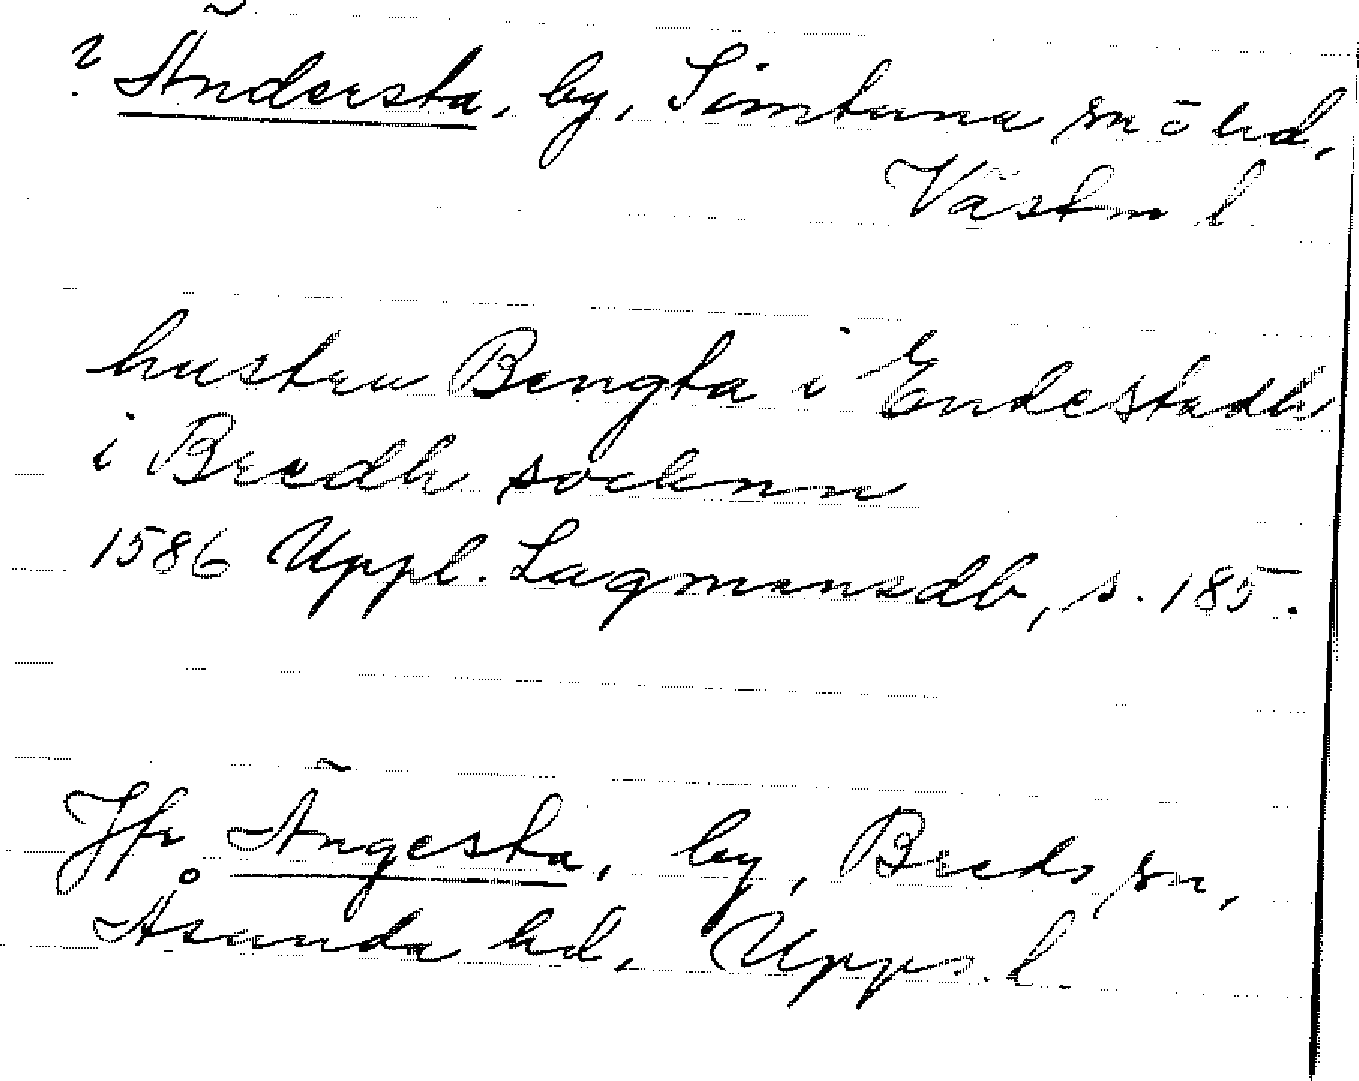 ? Ändersta, by, Simtuna sn o hd,
Västm l
hustru Bengta i Endestadh
i Bredh sockenn
1586 Uppl. Lagmansdb, s. 185.
Jfr Ängesta, by, Breds sn,
Åsunda hd, Upps. l.